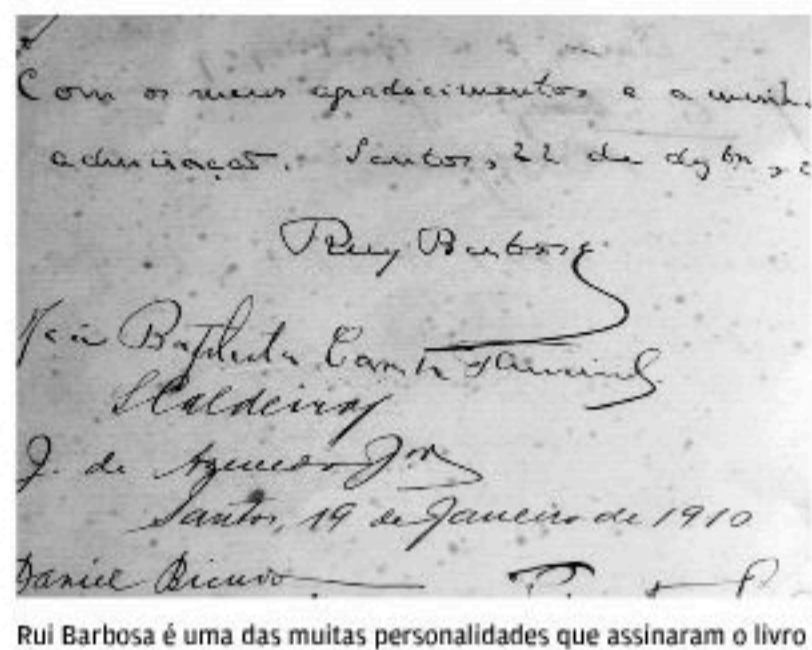 Com os meus agradecimentos e a minha
admiração. Santos, 22 de
Ruy Barbosa
Baptista
SCaldeira
J. de Azevedo Jor
Santos, 19 de Janeiro de 1910
Daniel Bicudo
Rui Barbosa é uma das muitas personalidades que assinaram o livro